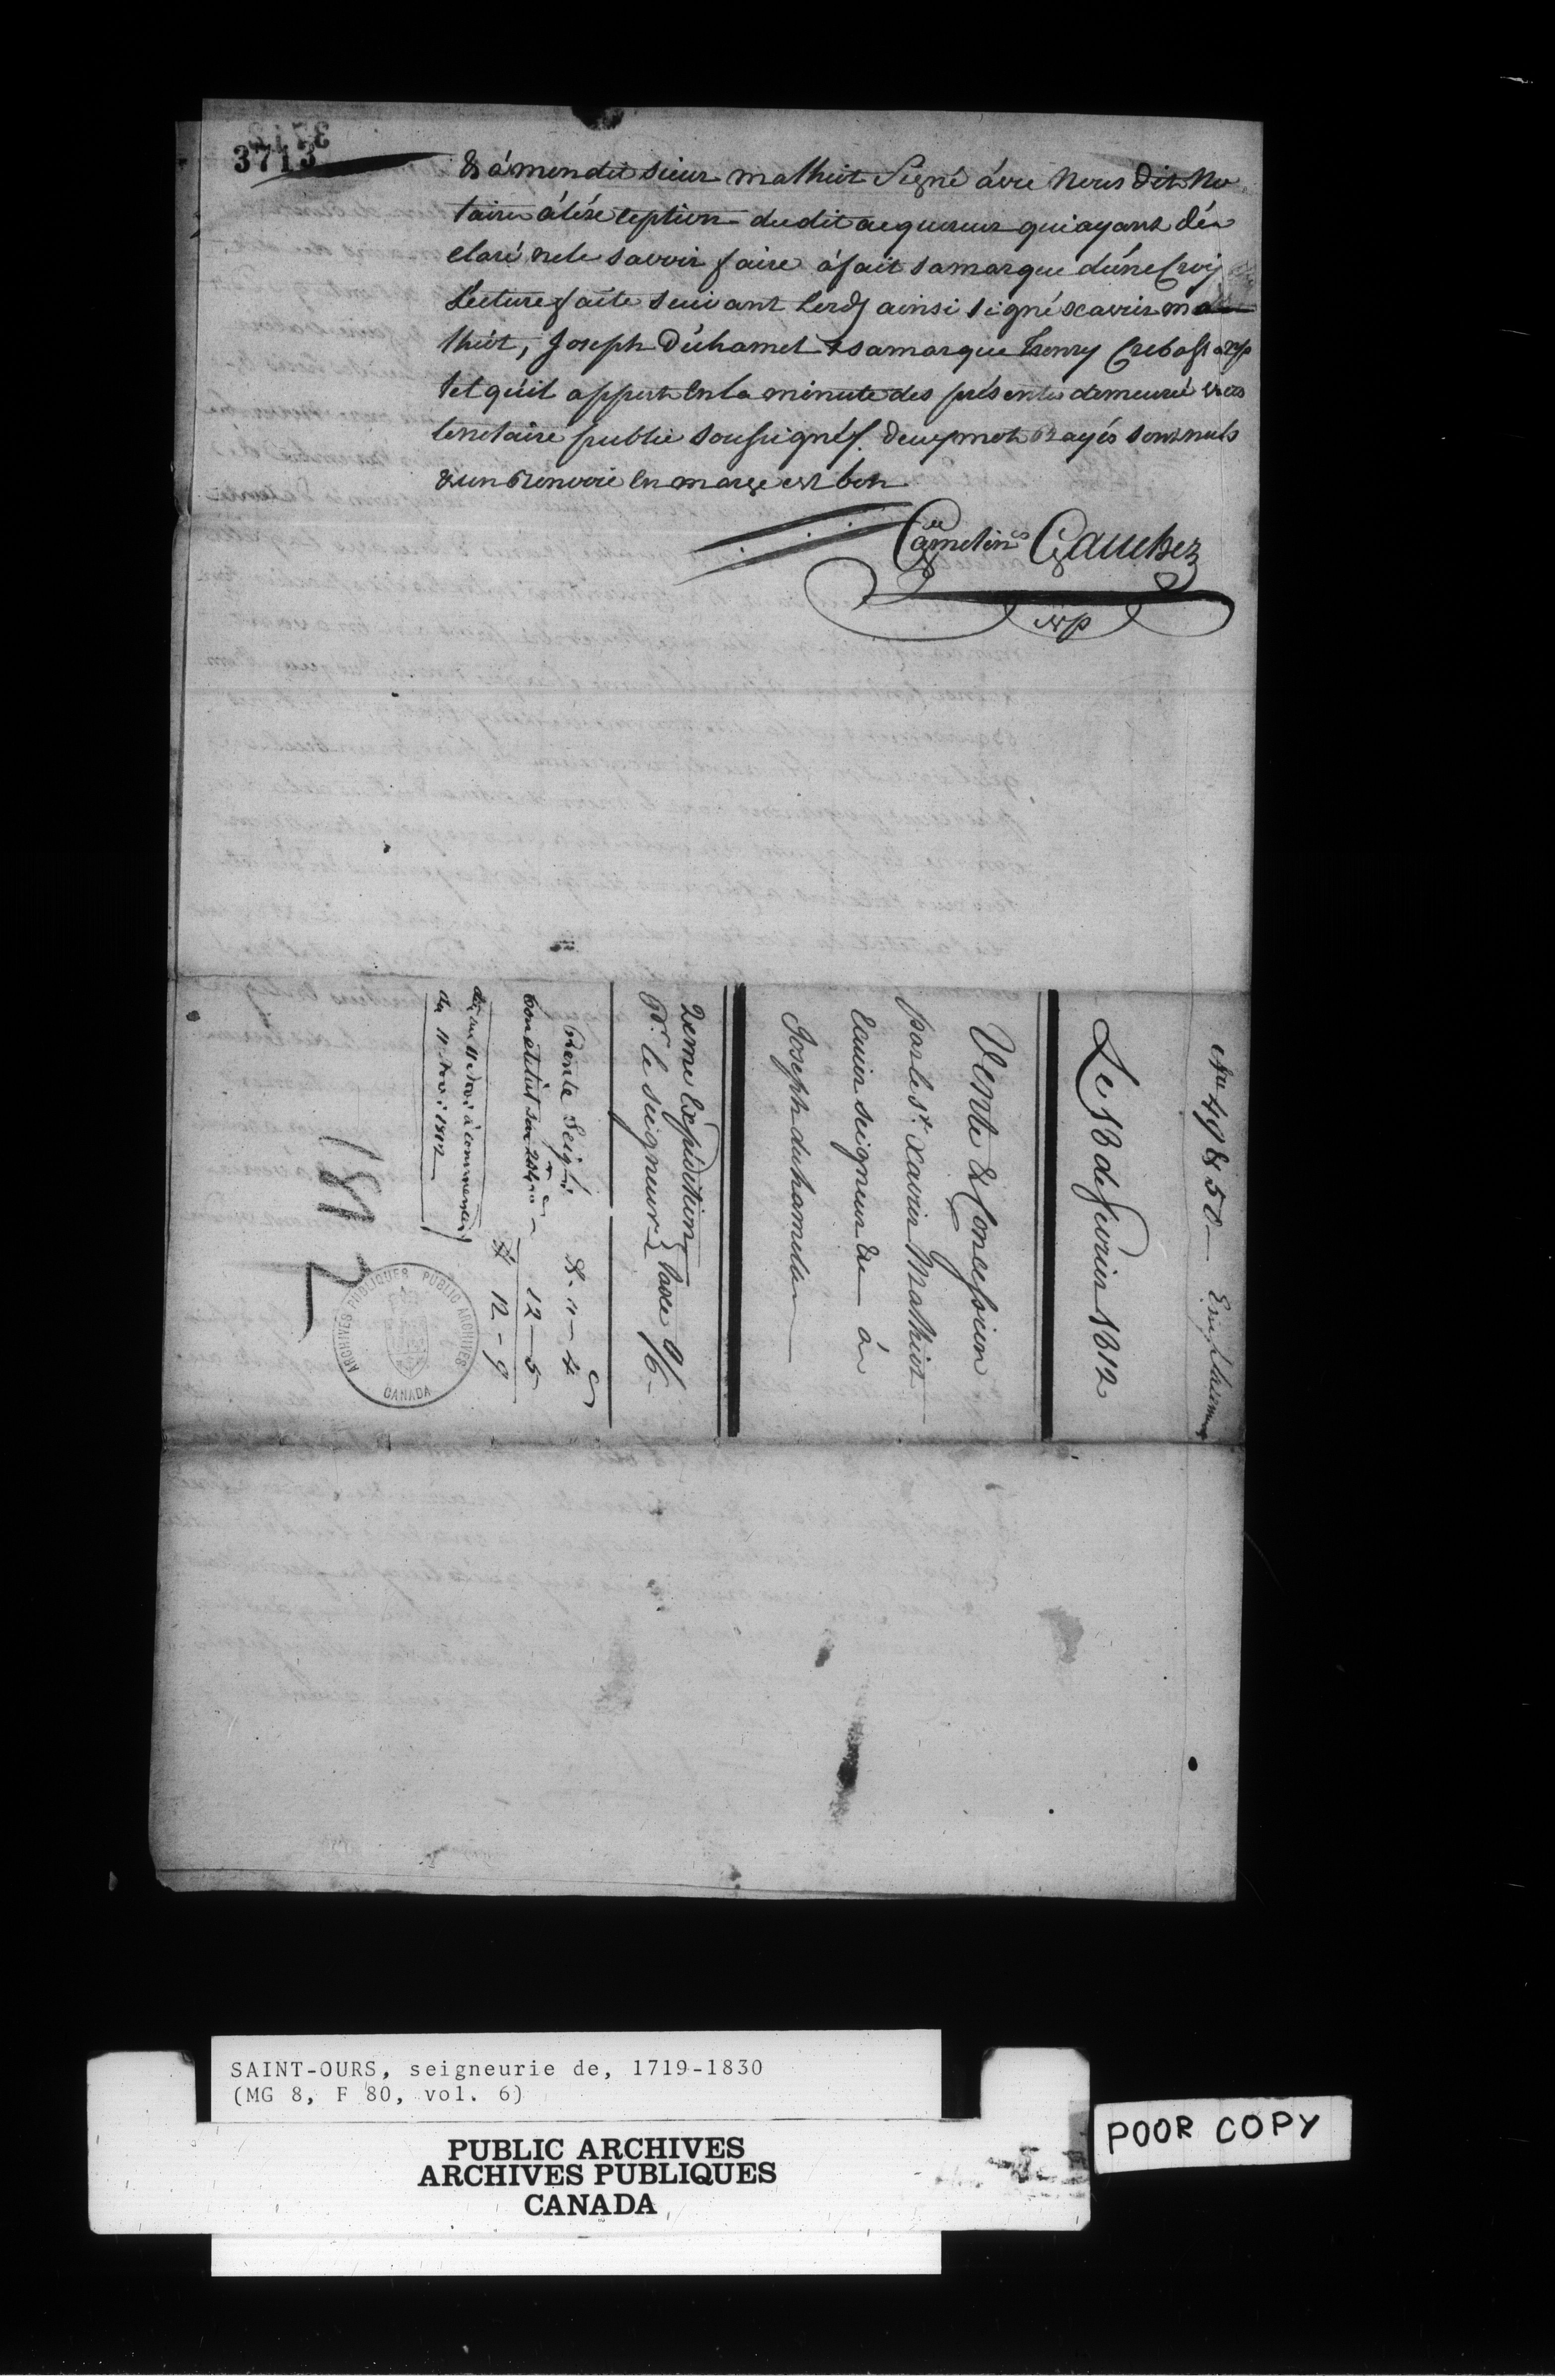 3713
& à mon dit sieur mathiot Signé àvec Nous dit No
taire à léxception du dit acquereur qui ayant dé
claré ne le savoir faire à fait sa marque d'úne Croix
Lecture faite suivant Lord ainsi signé xavier ma
thiot, Joseph Duhamel + sa marque henry Crebassa np
tel qu'il appert En la minute des présentes demeurée vers
le notaire public soussigné. deux mots rayés sont nuls
& un Renvoie En marge est bon
Gauthier
np
No 49 & 50
Le 18 de fevrier 1812
Vente & Concession
par le Sr. Xavier Mathiot
Ecuier seigneur &c à
Joseph duhamel
2eme Expédition
Pr. le seigneur } taxe 9/6
Rente Seigle
constitut sur 12 - 5
12 - 9
à commencer
du 11 1812
187
ARCHIVES PUBLIQUES PUBLIC ARCHIVES
CANADA
SAINT-OURS, seigneurie de, 1719-1830
(MG 8, F 80, vol. 6)
PUBLIC ARCHIVES
ARCHIVES PUBLIQUES
CANADA
POOR COPY